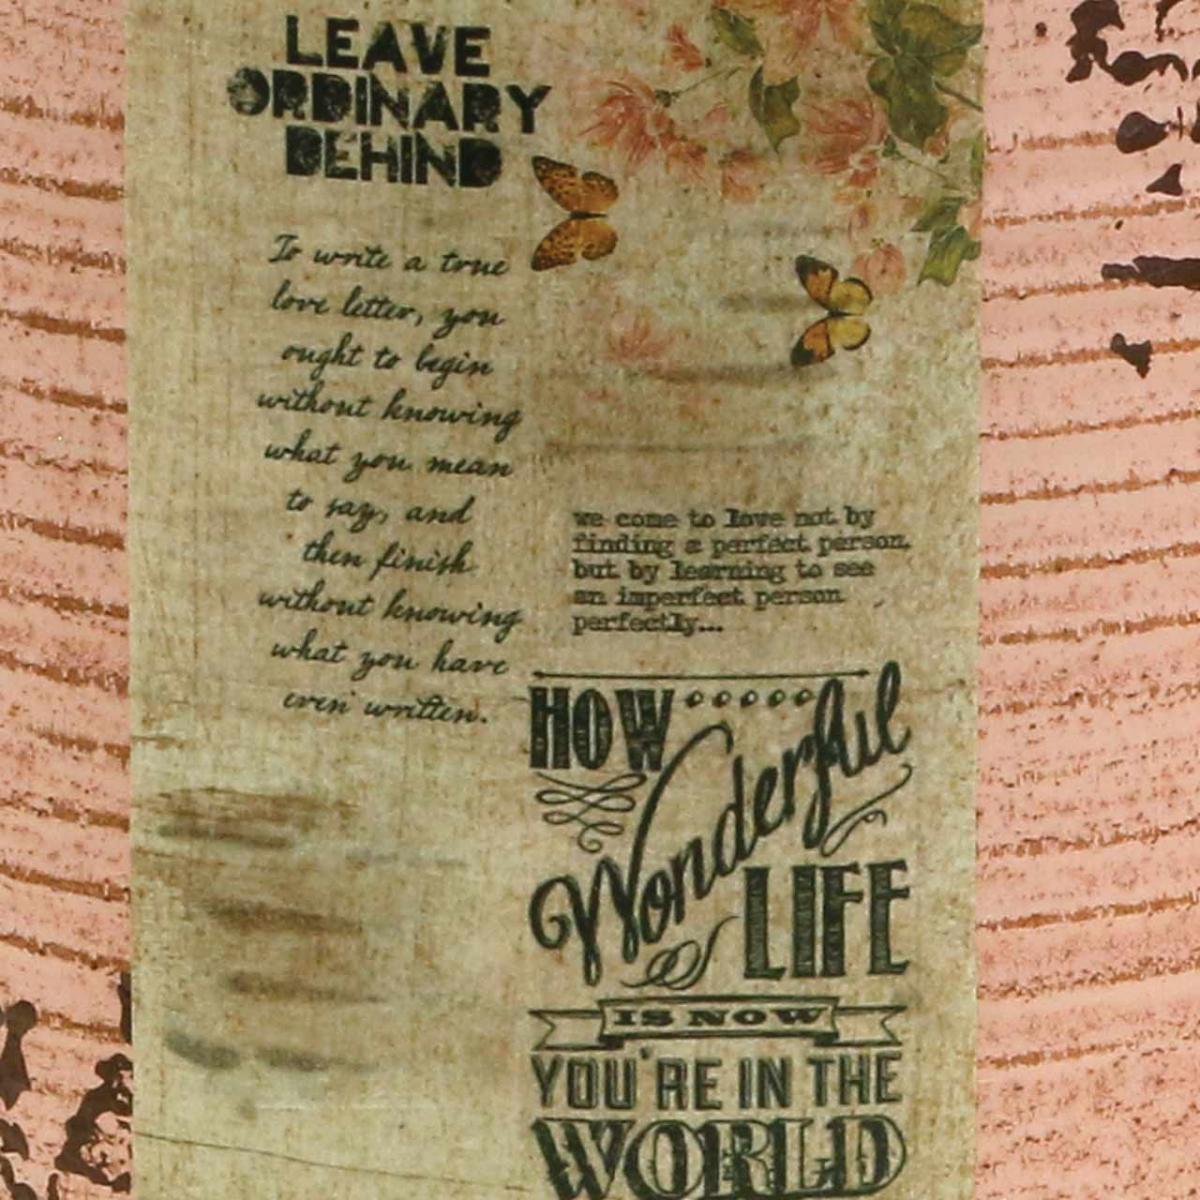 LEAVE
ORDINARY
BEHIND
To write a true
love letter, you
ought to begin
without knowing
what you mean
to say, and
then finish
without knowing
what you have
even written.
we come to love not by
finding a perfect person,
but by learning to see
an imperfect person
perfectly...
HOW
Wonderful
LIFE
IS NOW
YOU'RE IN THE
WORLD